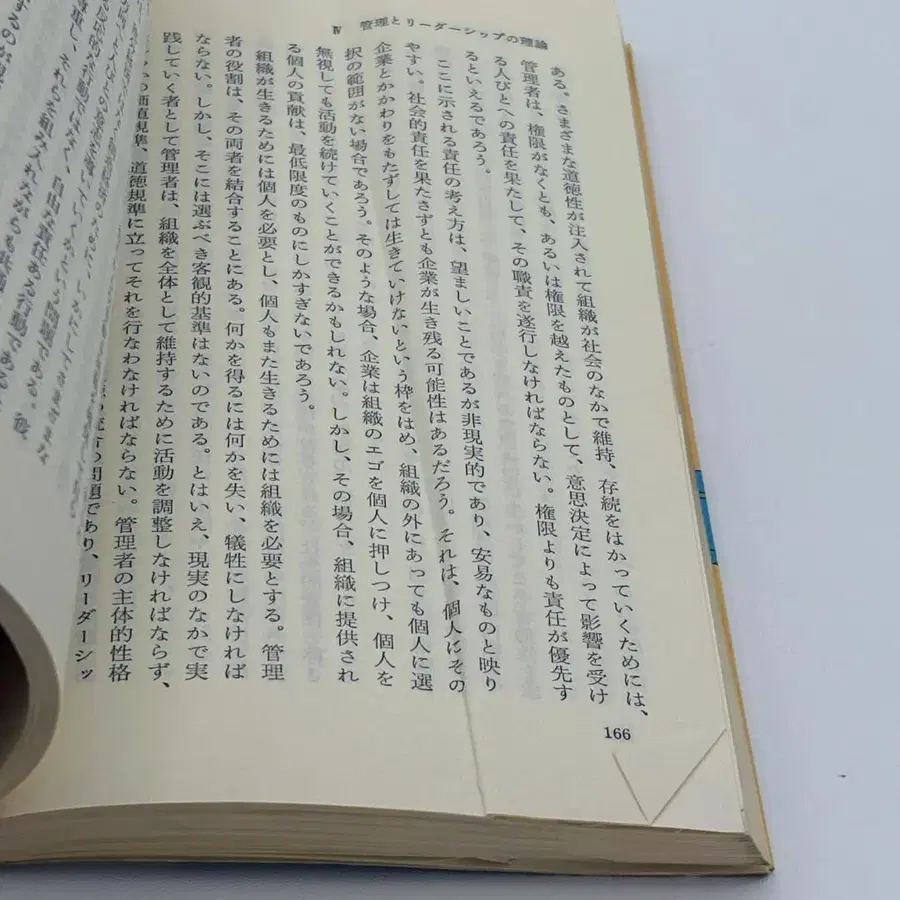 Ⅳ 管理とリーダーシップの理論
ある。さまざまな道徳性が注入されて組織が社会のなかで維持、存続をはかっていくためには、
管理者は、権限がなくとも、あるいは権限を越えたものとして、意思決定によって影響を受け
る人びとへの責任を果たして、その職責を遂行しなければならない。権限よりも責任が優先す
るといえるであろう。
ここに示される責任の考え方は、望ましいことであるが非現実的であり、安易なものと映り
やすい。社会的責任を果たさずとも企業が生き残る可能性はあるだろう。それは、個人にその
企業とかかわりをもたずしては生きていけないという枠をはめ、組織の外にあっても個人に選
択の範囲がない場合であろう。そのような場合、企業は組織のエゴを個人に押しつけ、個人を
無視しても活動を続けていくことができるかもしれない。しかし、その場合、組織に提供され
る個人の貢献は、最低限度のものにしかすぎないであろう。
組織が生きるためには個人を必要とし、個人もまた生きるためには組織を必要とする。管理
者の役割は、その両者を結合することにある。何かを得るには何かを失い、犠牲にしなければ
ならない。しかし、そこには選ぶべき客観的基準はないのである。とはいえ、現実のなかで実
践していく者として管理者は、組織を全体として維持するために活動を調整しなければならず、
価値規準、道徳規準に立ってそれを行なわなければならない。管理者の主体的性格
の問題であり、リーダーシッ
166
自由な責任ある行動である
それらを組み入れながらも